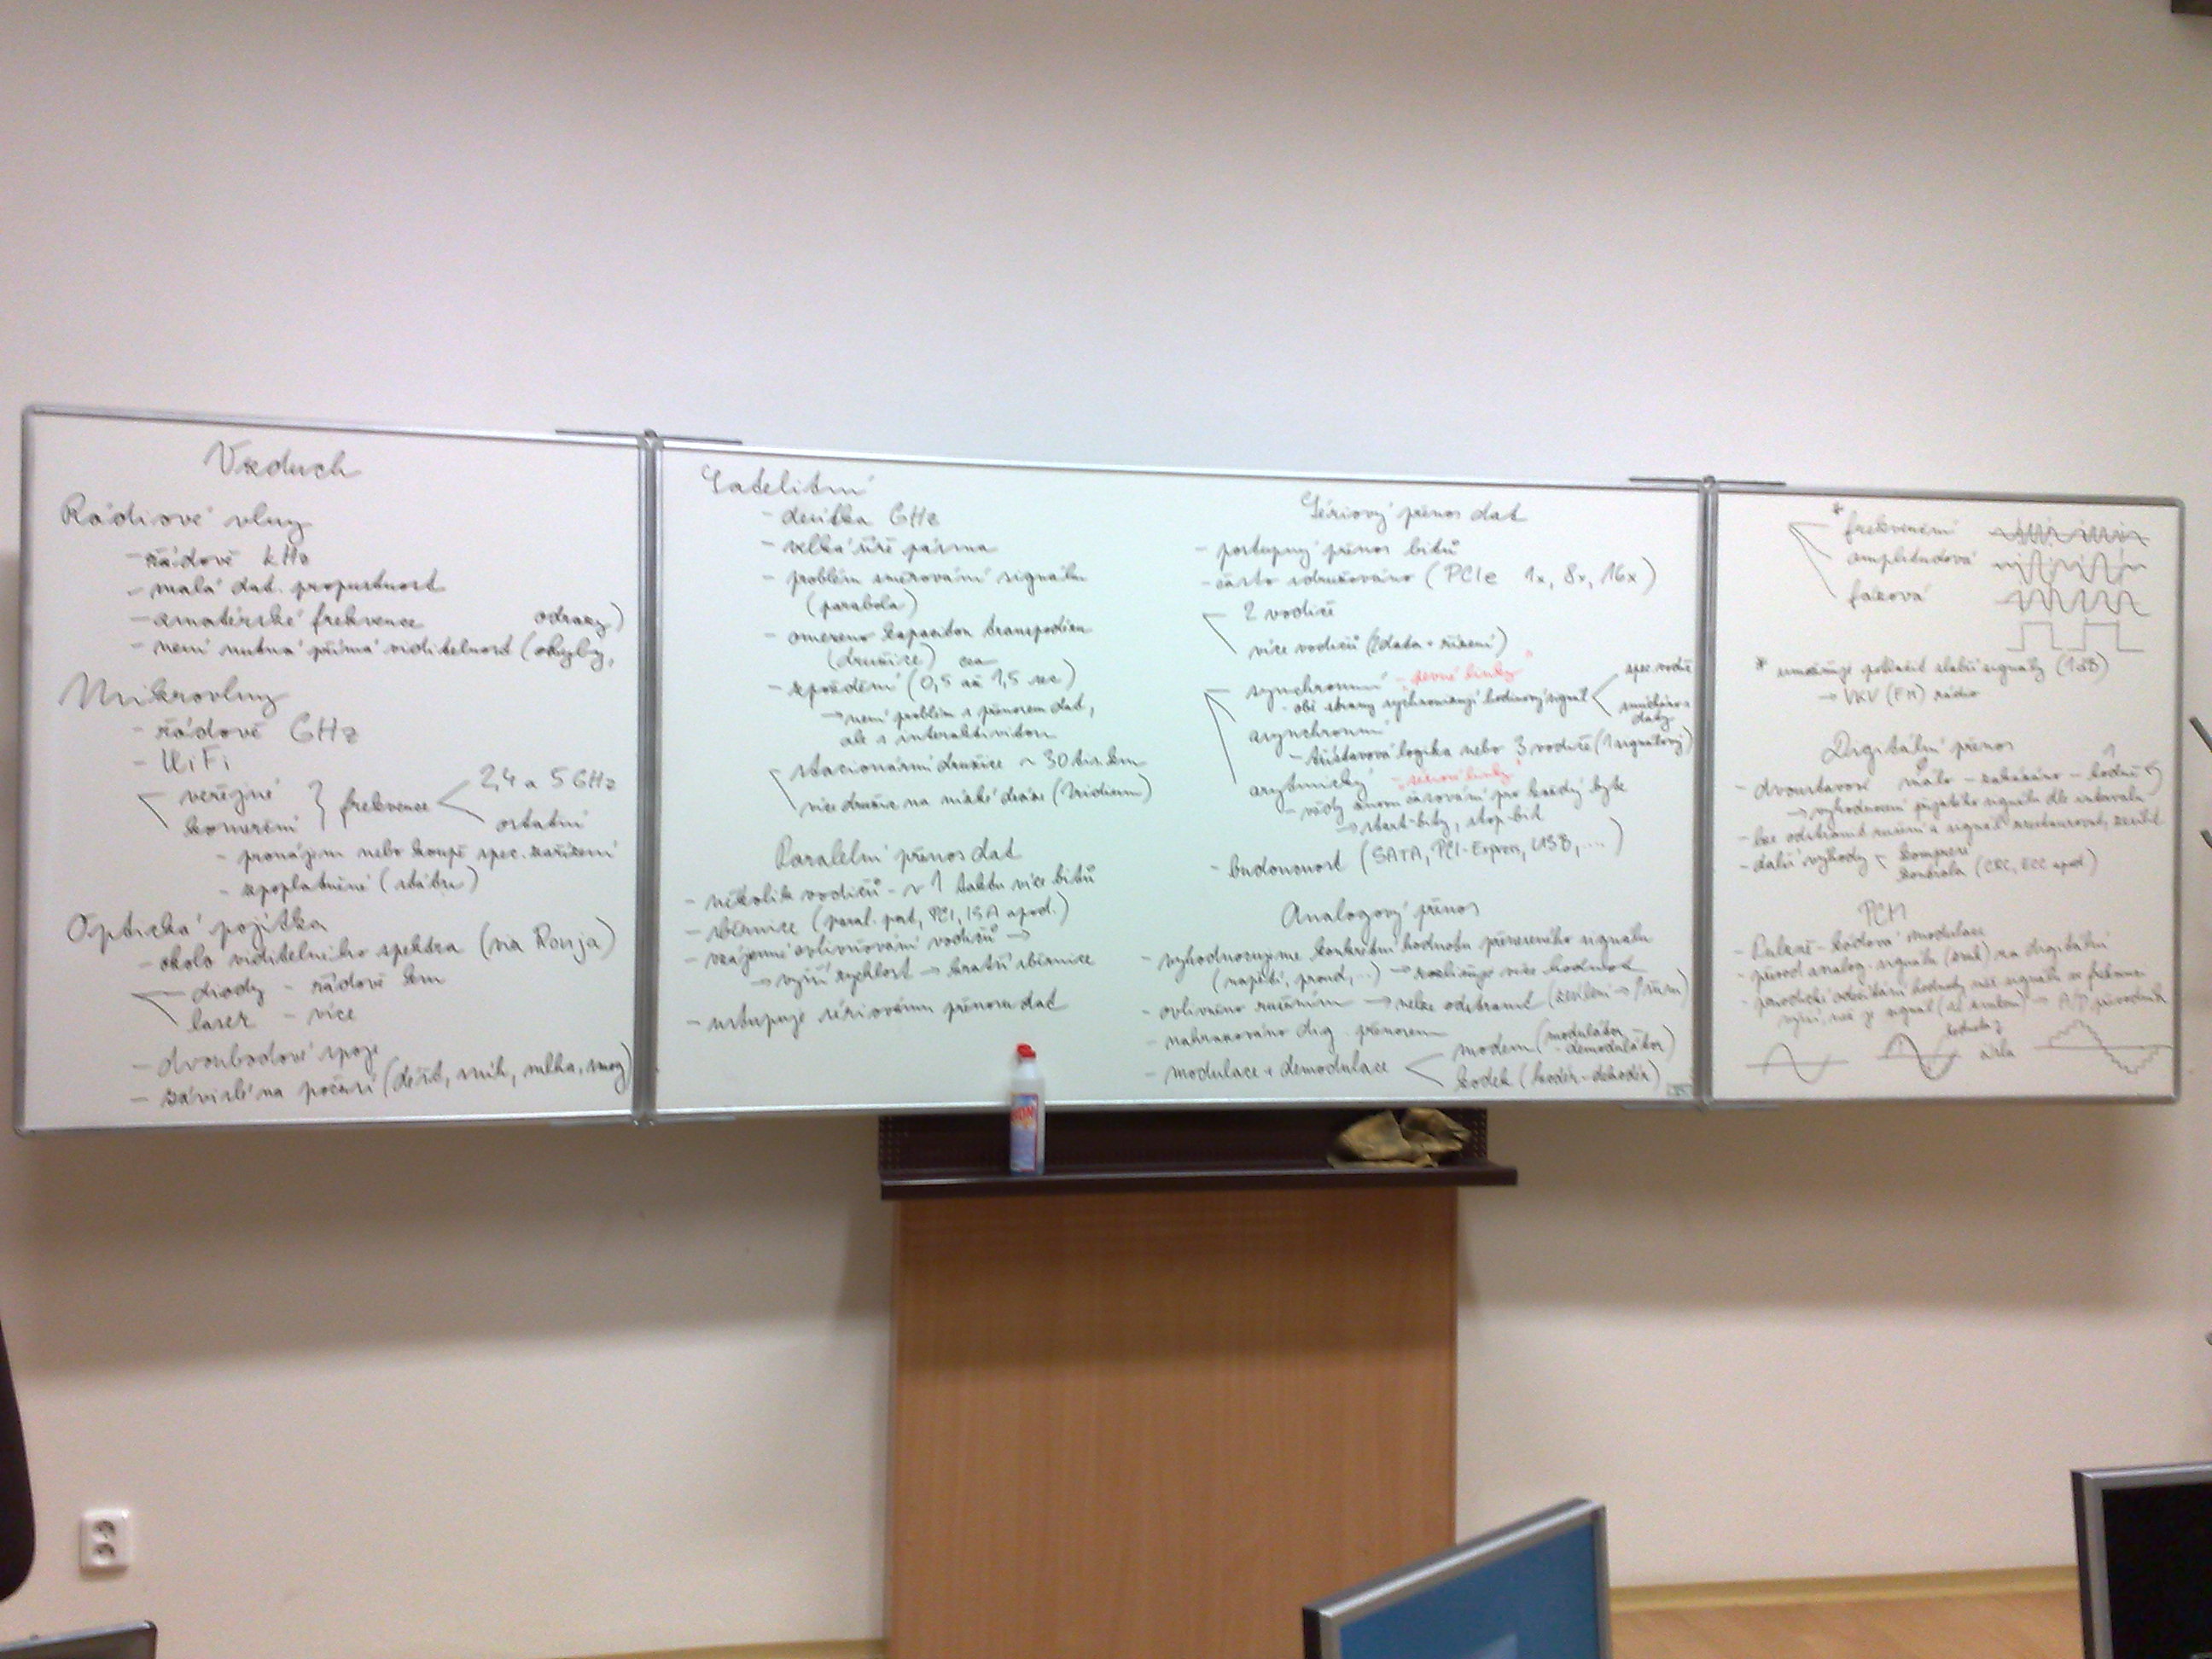 Vzduch
Rádiové vlny
- řádově kHz
- malá dat. propustnost
- amatérské frekvence
- není nutná přímá viditelnost (ohyby, odrazy)
Mikrovlny
- řádově GHz
- WiFi
veřejné
komerční } frekvence
2,4 a 5 GHz
ostatní
- pronájem nebo koupě spec. zařízení
- zpoplatněné (státu)
Optická pojítka
- okolo viditelného spektra (via Ronja)
diody - řádově km
laser - více
- dvoubodové spoje
- závislé na počasí (déšť, sníh, mlha, smog)
Satelitní
- desítka GHz
- velká šíře pásma
- problém směrování signálu
(parabola)
- omezeno kapacitou transpodéru
(družice)
- zpoždění (0,5 až 1,5 sec)
→ není problém s přenosem dat,
ale s interaktivitou
stacionární družice ~ 30 tis. km
více družic na nízké dráze (Iridium)
Paralelní přenos dat
- několik vodičů - v 1 taktu více bitů
- sběrnice (paral. port, PCI, ISA apod.)
- vzájemné ovlivňování vodičů →
→ vyšší rychlost → kratší sběrnice
- ustupuje sériovému přenosu dat
Sériový přenos dat
- postupný přenos bitů
- často sdružováno (PCIe 1x, 8x, 16x)
2 vodiče
více vodičů (data + řízení)
synchronní - "pevné linky"
- obě strany sychronizují hodinový signál
spec. vodič
smícháno s
daty
asynchronní
- třístavová logika nebo 3 vodiče (1 signálový)
arytmický - "sériové linky"
- vždy znovu časování pro každý byte
→ start-bity, stop-bit
- budoucnost (SATA, PCI-Express, USB, ...)
Analogový přenos
- vyhodnocujeme konkrétní hodnotu přeneseného signálu
(napětí, proud, ...) → rozlišuje více hodnot
- ovlivněno rušením → nelze odstranit (zesílení → ↑ šum)
- nahrazováno dig. přenosem
- modulace + demodulace
modem (modulátor
- demodulátor)
kodek (kodér - dekodér)
* frekvenční
amplitudová
fázová
* umožňuje potlačit slabší signály (1 dB)
→ VKV (FM) rádio
Digitální přenos
- dvoustavové málo - zakázáno - hodně
→ vyhodnocení přijatého signálu dle intervalu
- lze odstranit rušení a signál zrestaurovat, zesílit
- další výhody komprese
kontrola (CRC, ECC apod.)
PCM
- Pulsně-kódová modulace
- převod analog. signálu (zvuk) na digitální
- periodické odečítání hodnoty
vyšší, než je signál → A/D převodník
hodnoty
čísla